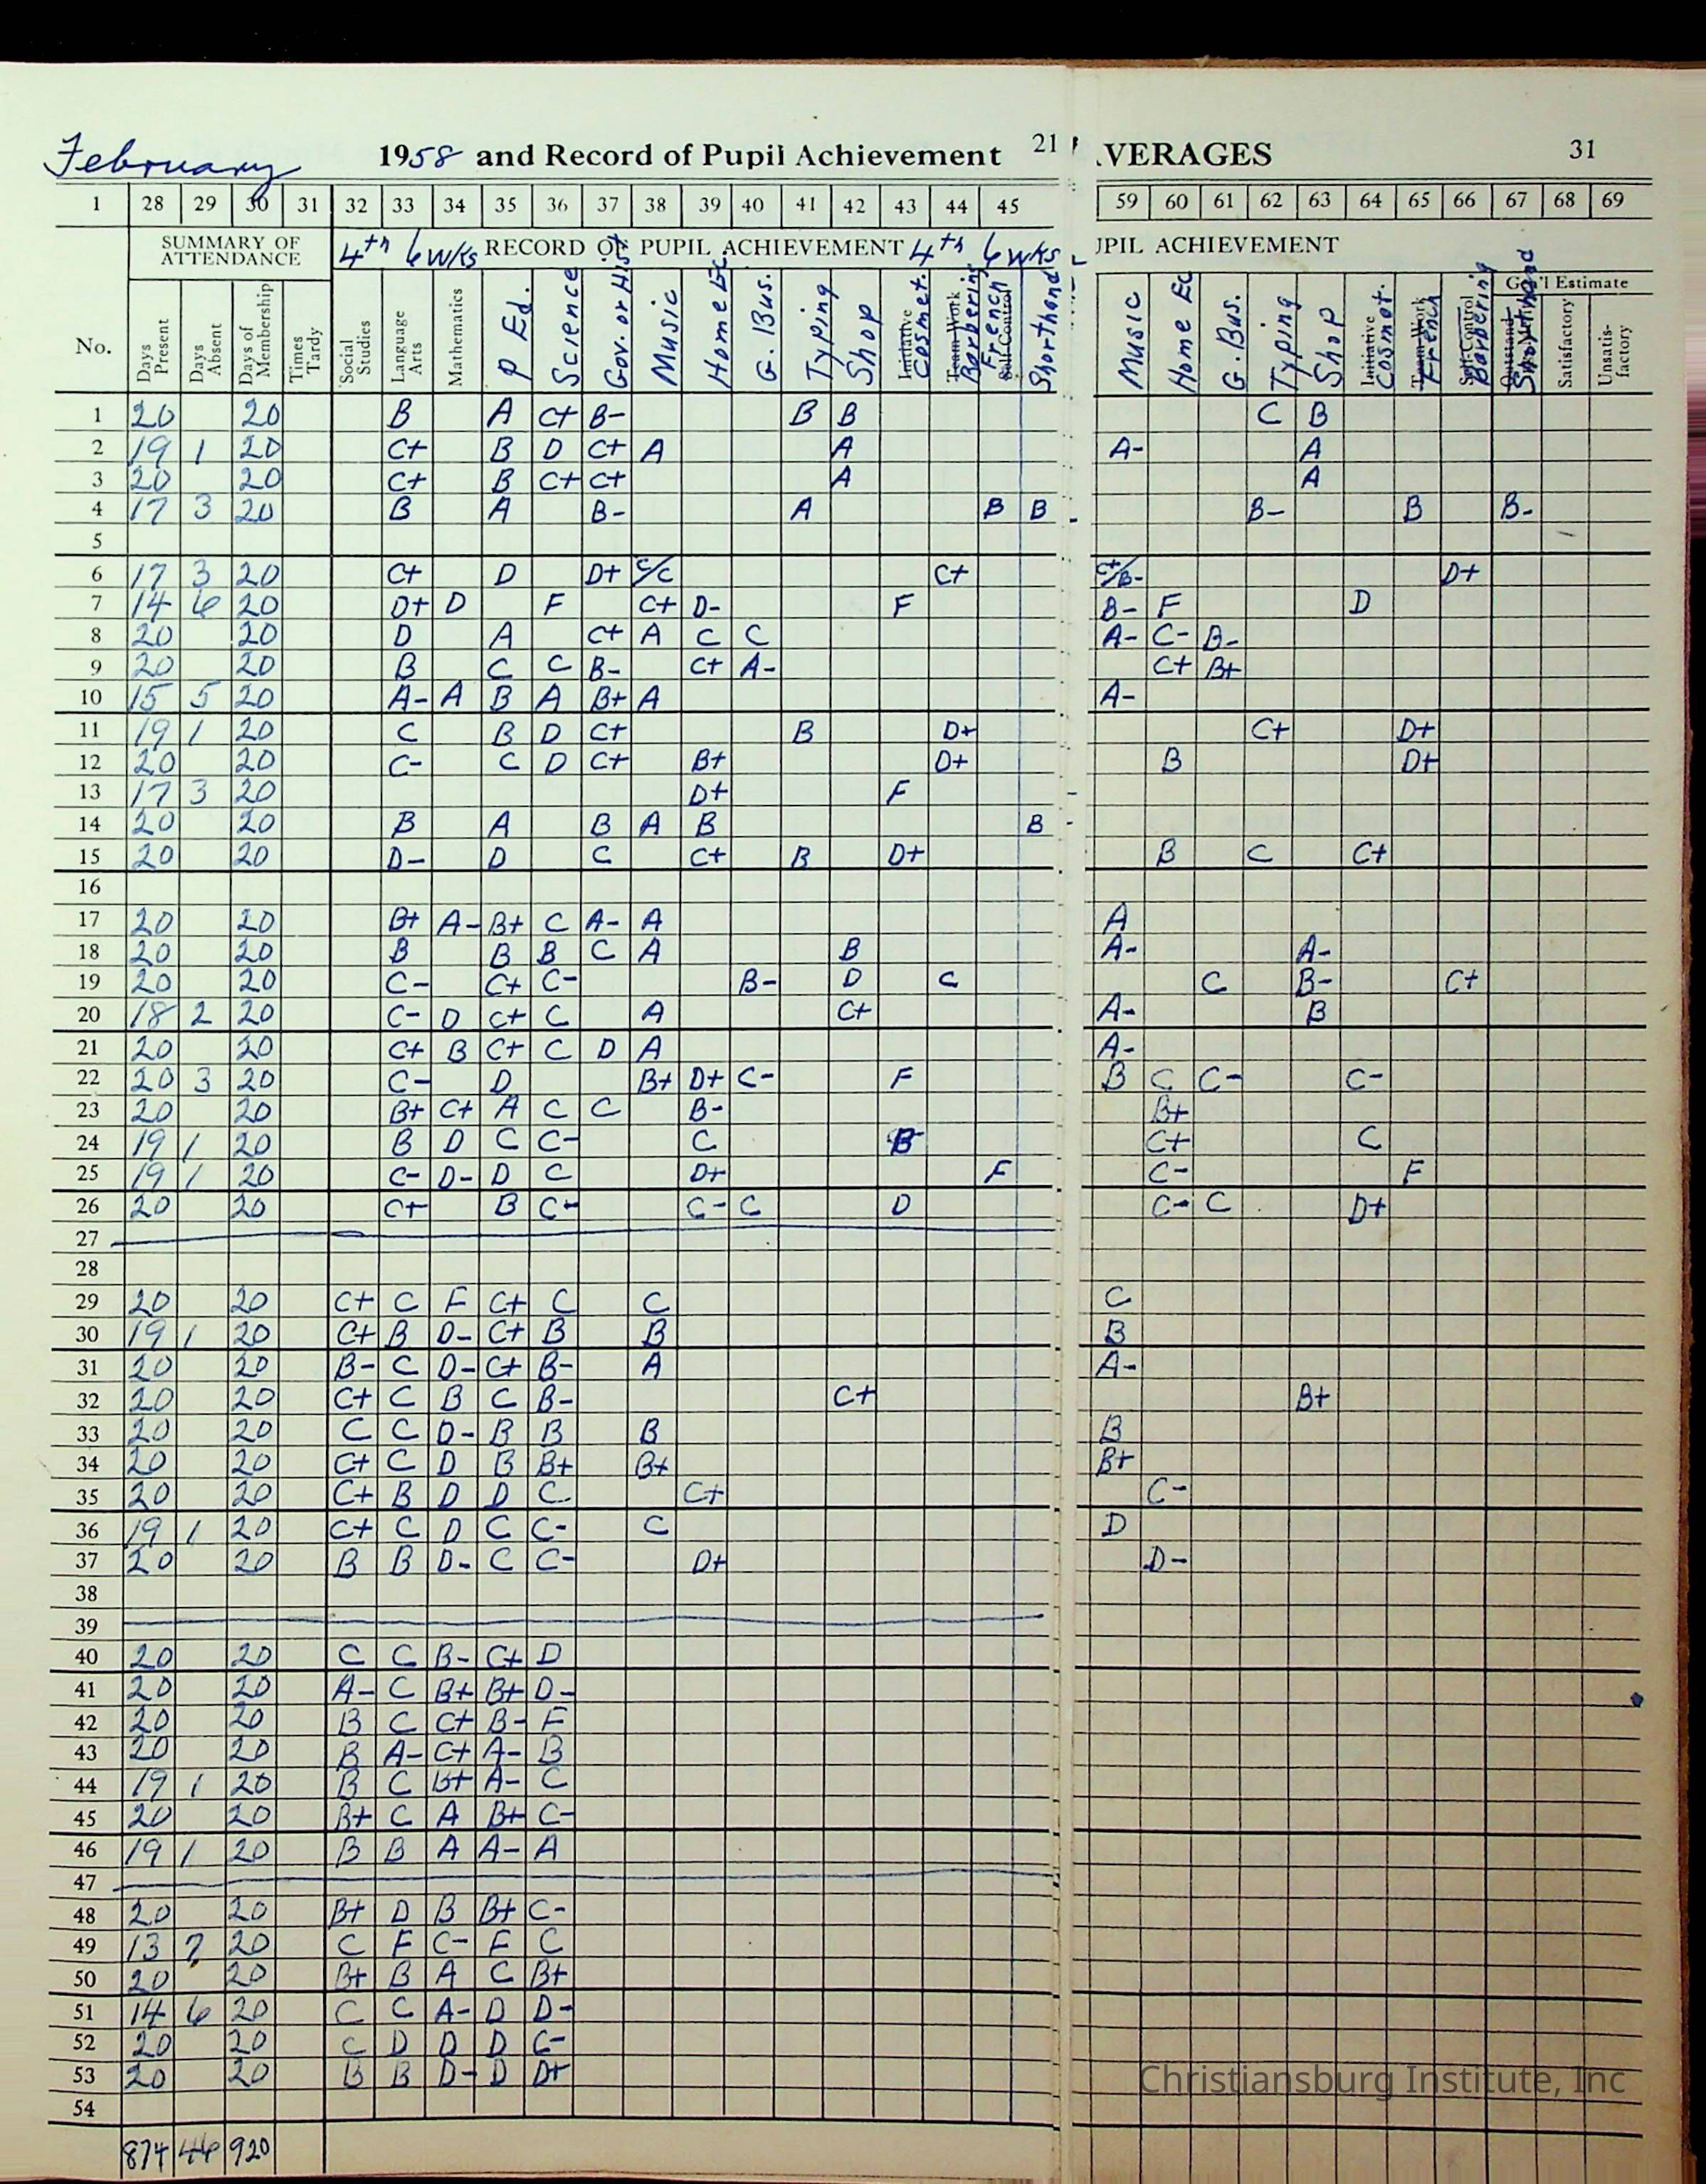 February 1958 and Record of Pupil Achievement 21 VERAGES 31
1 28 29 30 31 32 33 34 35 36 37 38 39 40 41 42 43 44 45 59 60 61 62 63 64 65 66 67 68 69
SUMMARY OF ATTENDANCE 4th 6 wks RECORD OF PUPIL ACHIEVEMENT 4th 6 wks UPIL ACHIEVEMENT
Gen'l Estimate
No. Days Present Days Absent Days of Membership Times Tardy Social Studies Language Arts Mathematics P Ed. Science Gov. or Hist Music Home Ec. G. Bus. Typing Shop Initiative Cosmet. Team Work Barbering French Self-Control Shorthand Music Home Ec G. Bus. Typing Shop Initiative Cosmot. Team Work French Self-Control Barbering Shorthand Satisfactory Unsatis-factory
1 20 20 B A C+ B- B B C B
2 19 1 20 C+ B D C+ A A A- A
3 20 20 C+ B C+ C+ A A
4 17 3 20 B A B- A B B B- B B-
5
6 17 3 20 C+ D D+ C/C C+ C+/B- D+
7 14 6 20 D+ D F C+ D- F B- F D
8 20 20 D A C+ A C C A- C- B-
9 20 20 B C C B- C+ A- C+ B+
10 15 5 20 A- A B A B+ A A-
11 19 1 20 C B D C+ B D+ C+ D+
12 20 20 C- C D C+ B+ D+ B D+
13 17 3 20 D+ F
14 20 20 B A B A B B
15 20 20 D- D C C+ B D+ B C C+
16
17 20 20 B+ A- B+ C A- A A
18 20 20 B B B C A B A- A-
19 20 20 C- C+ C- B- D C C B- C+
20 18 2 20 C- D C+ C A C+ A- B
21 20 20 C+ B C+ C D A A-
22 20 3 20 C- D B+ D+ C- F B C C- C-
23 20 20 B+ C+ A C C B- B+
24 19 1 20 B D C C- C B C+ C
25 19 1 20 C- D- D C D+ F C- F
26 20 20 C+ B C- C- C D C- C D+
27
28
29 20 20 C+ C F C+ C C C
30 19 1 20 C+ B D- C+ B B B
31 20 20 B- C D- C+ B- A A-
32 20 20 C+ C B C B- C+ B+
33 20 20 C C D- B B B B
34 20 20 C+ C D B B+ B+ B+
35 20 20 C+ B D D C- C+ C-
36 19 1 20 C+ C D C C- C D
37 20 20 B B D- C C- D+ D-
38
39
40 20 20 C C B- C+ D
41 20 20 A- C B+ B+ D-
42 20 20 B C C+ B- F
43 20 20 B A- C+ A- B
44 19 1 20 B C B+ A- C
45 20 20 B+ C A B+ C-
46 19 1 20 B B A A- A
47
48 20 20 B+ D B B+ C-
49 13 7 20 C F C- F C
50 20 20 B+ B A C B+
51 14 6 20 C C A- D D-
52 20 20 C D D D C-
53 20 20 B B D- D D+
54
874 46 920
Christiansburg Institute, Inc